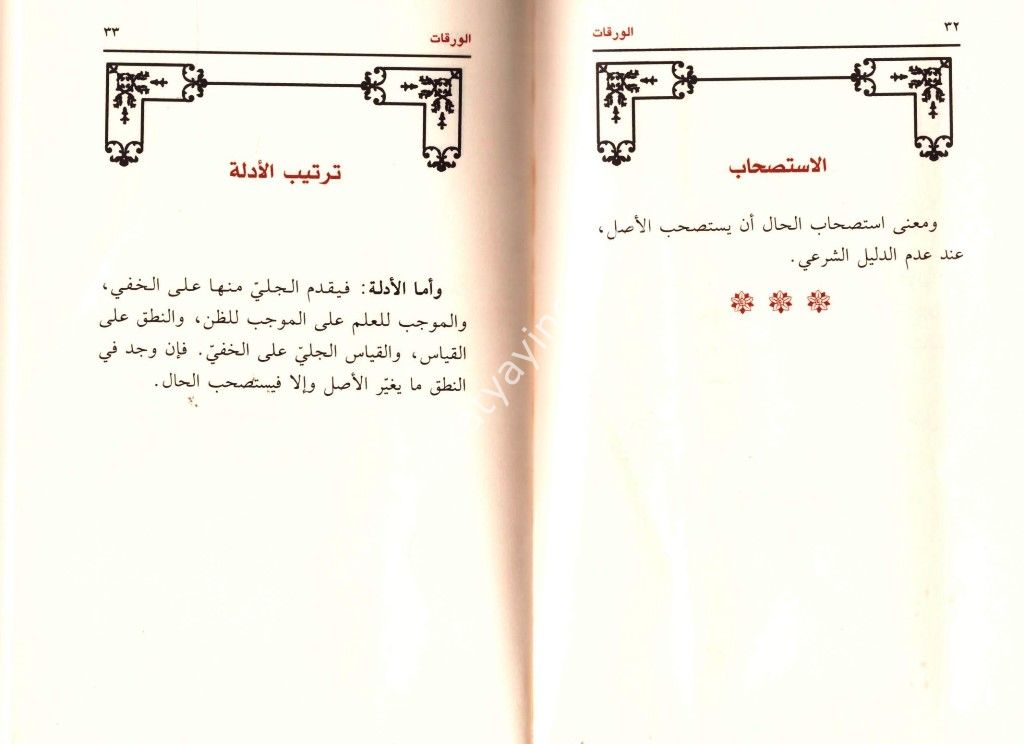 ٣٢
الورقات
الاستصحاب
ومعنى استصحاب الحال أن يستصحب الأصل،
عند عدم الدليل الشرعي.
الورقات
٣٣
ترتيب الأدلة
وأما الأدلة: فيقدم الجليّ منها على الخفي،
والموجب للعلم على الموجب للظن، والنطق على
القياس، والقياس الجليّ على الخفيّ. فإن وجد في
النطق ما يغيّر الأصل وإلا فيستصحب الحال.